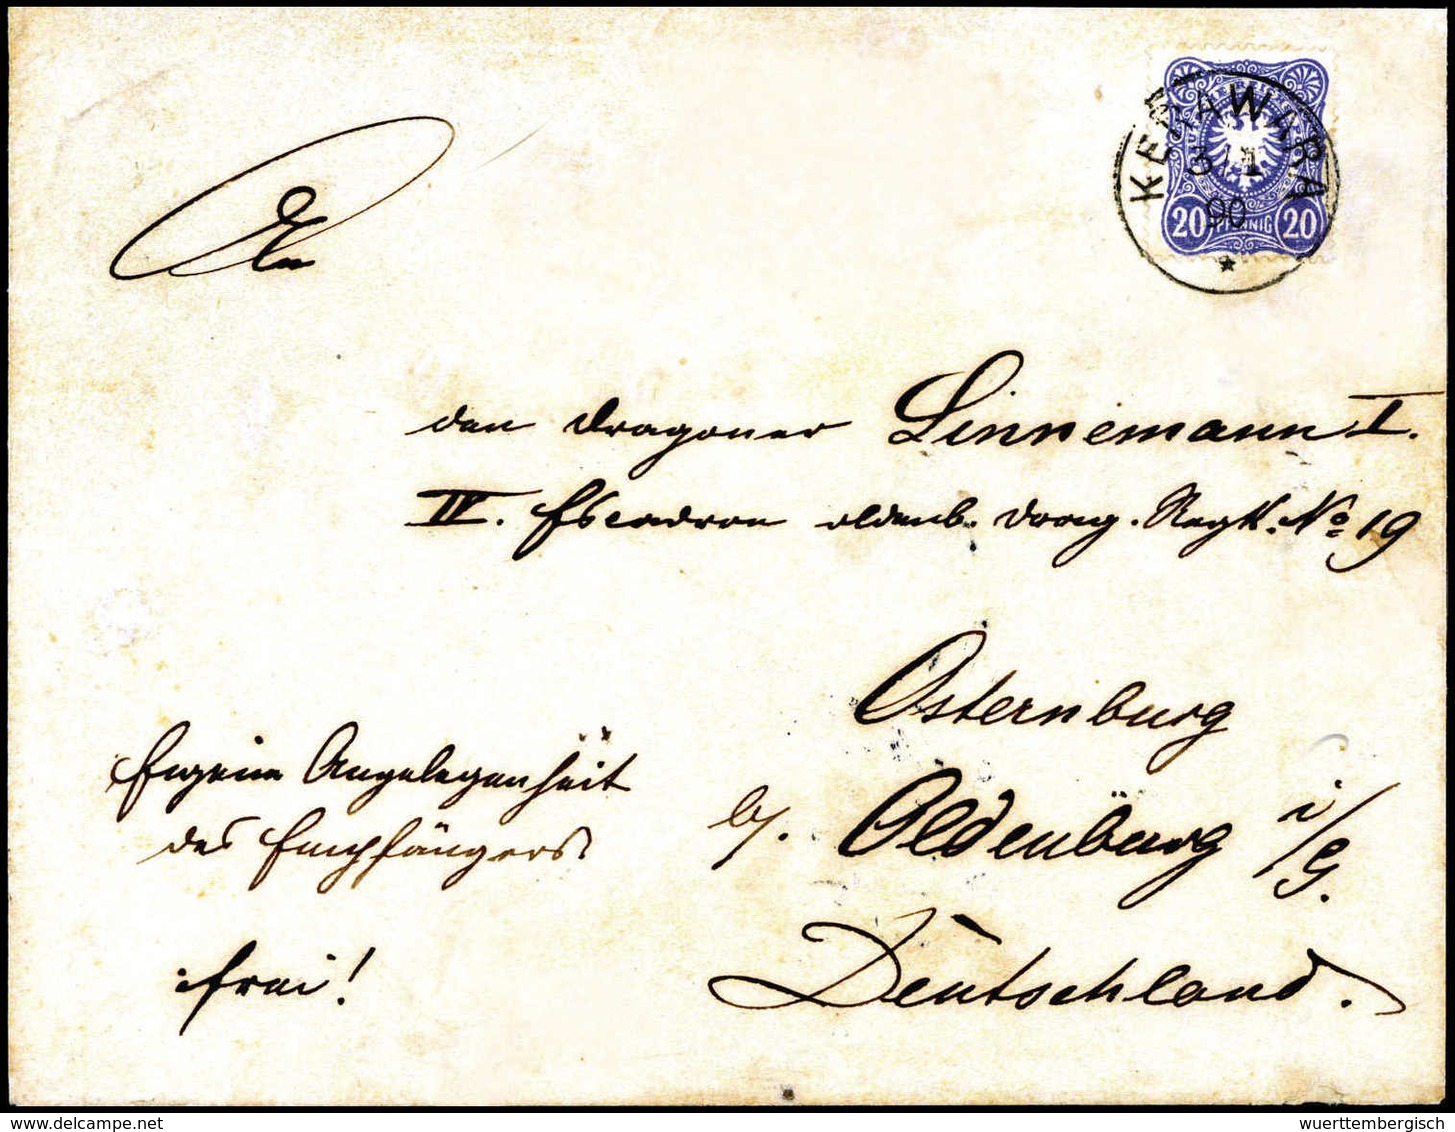 KERAWARA
3/1
90
20 PFENNIG 20
An
den Dragoner Linnemann I.
IV. Escadron oldenb. Drag. Regt. No 19
Osternburg
b/. Oldenburg i/G.
Deutschland.
Eigene Angelegenheit
des Empfängers
frei!
wuerttembergisch